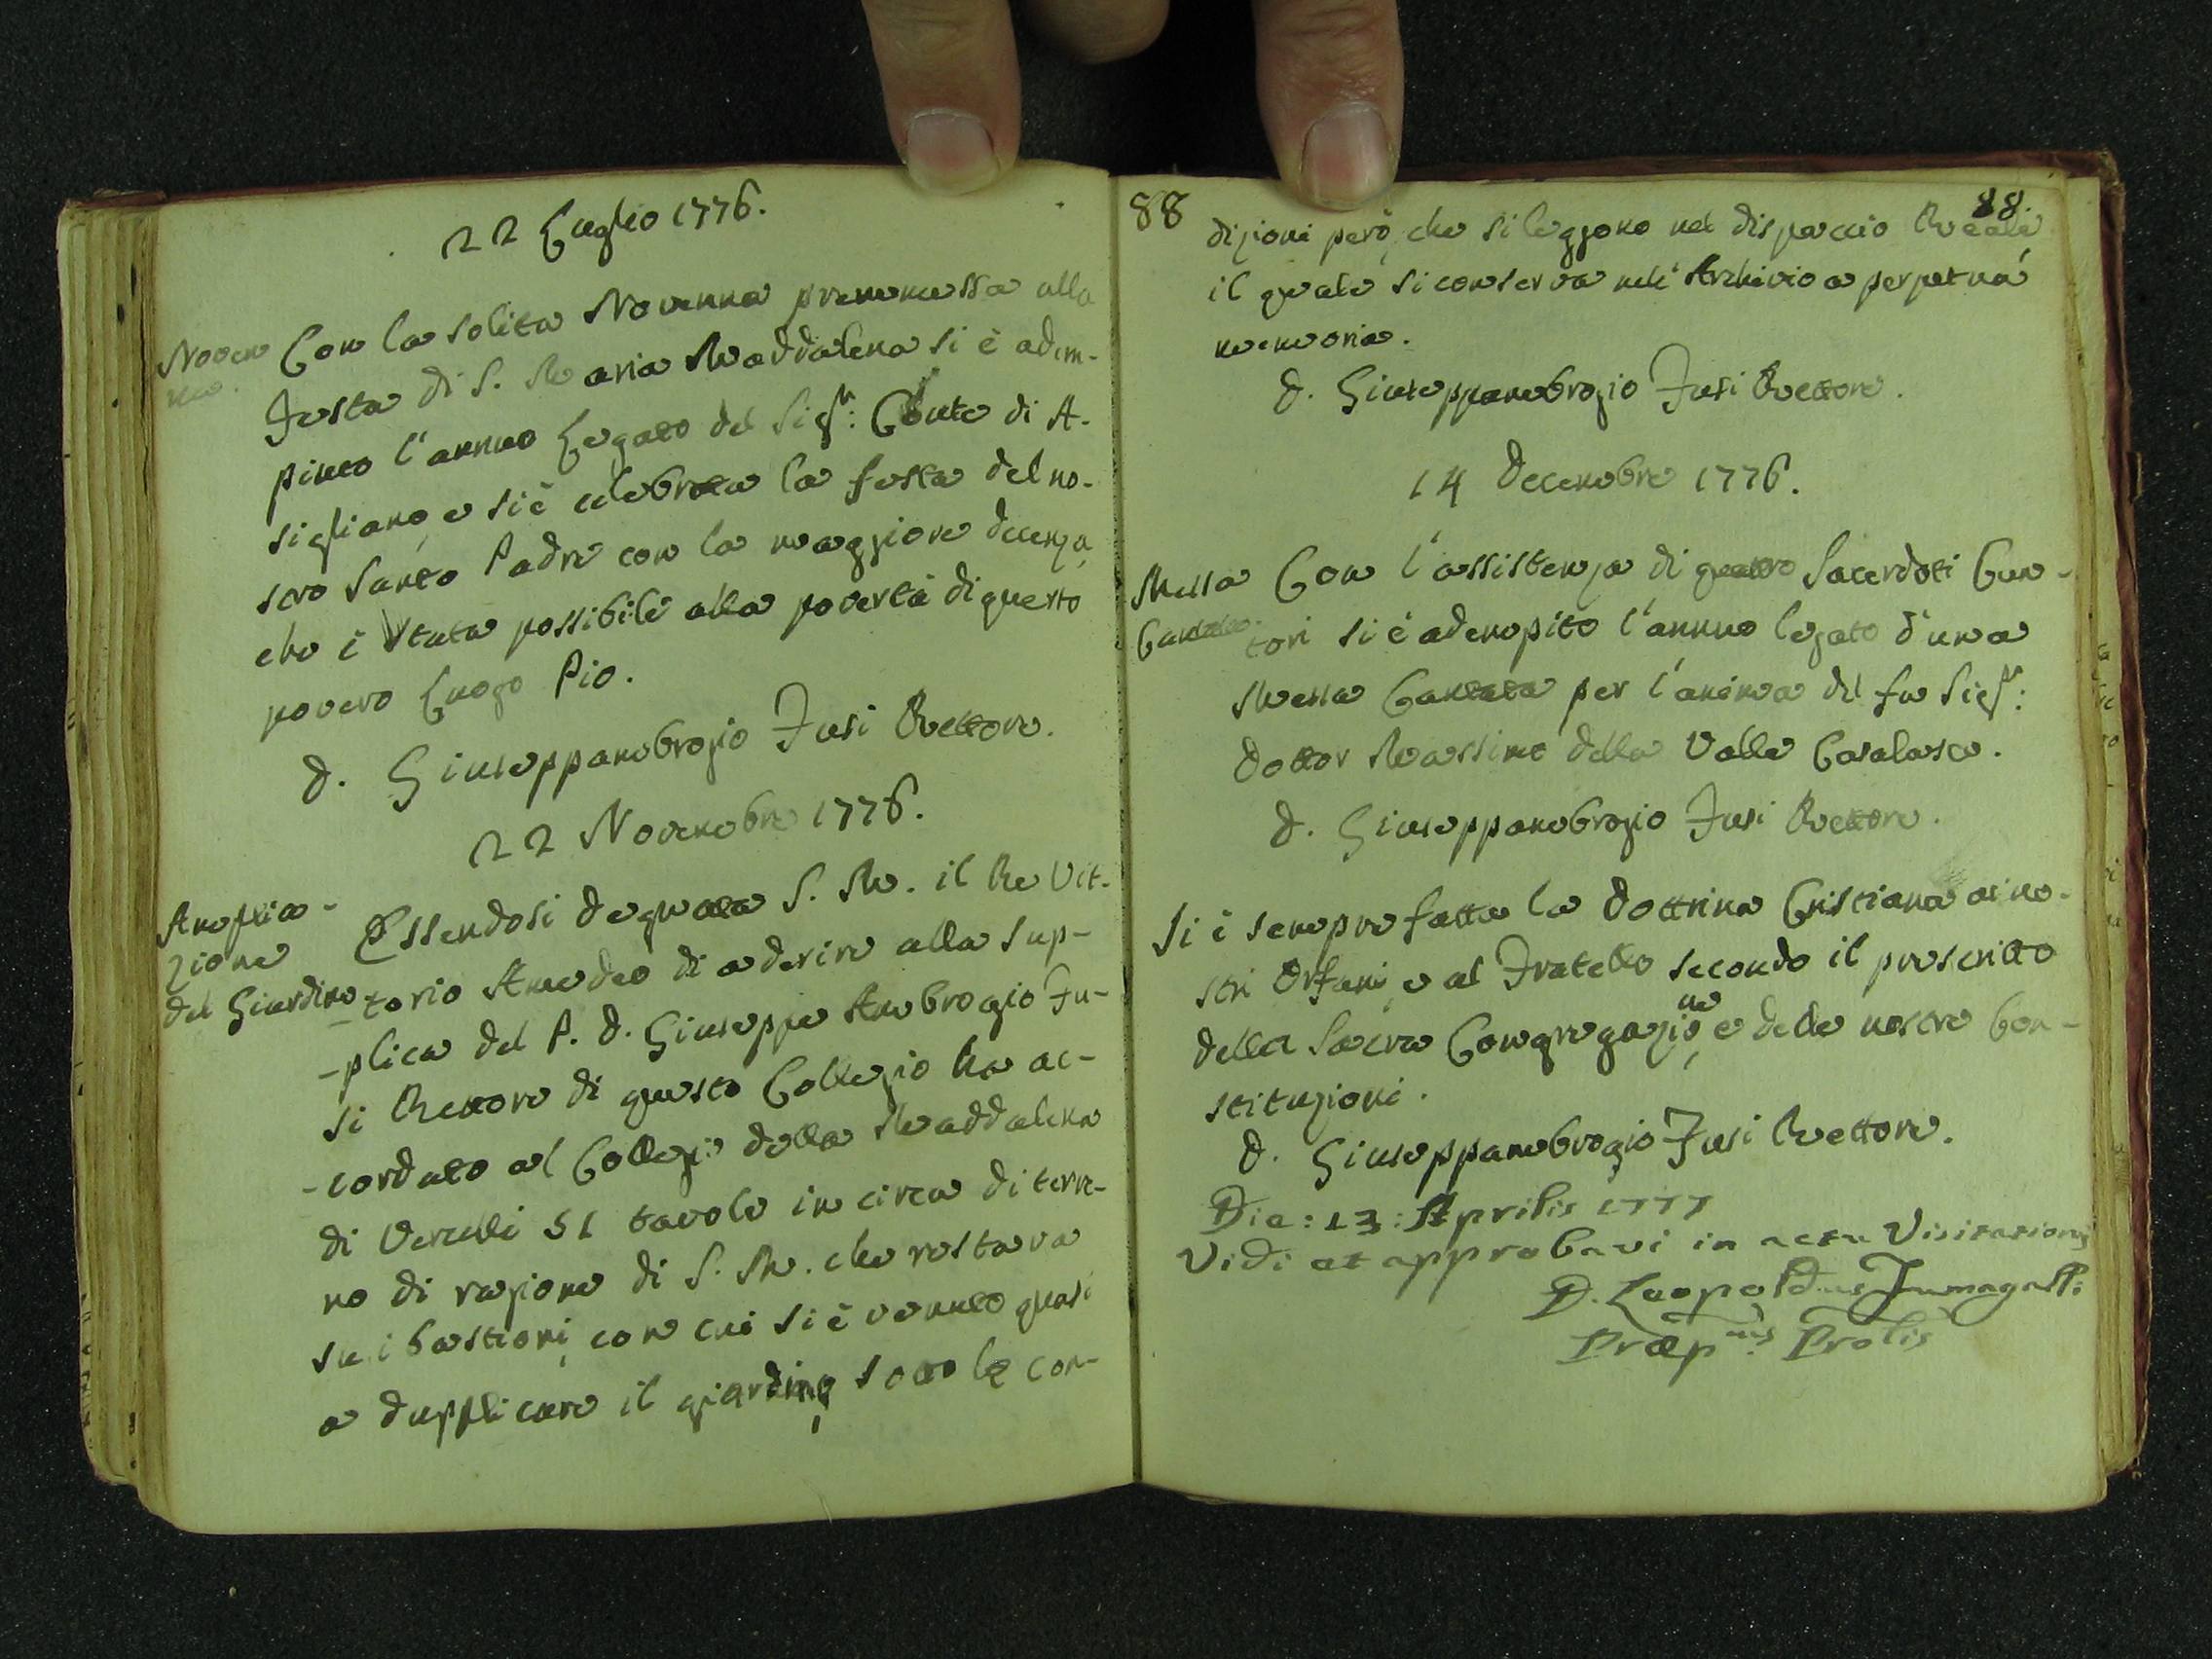 22 Luglio 1776.
Noven
na.
Con la solita Novenna premmessa alla
Festa di S. Maria Maddalena si è adem-
pinto l'annuo Legato del Sigr: Conte di A-
sigliano, e si è celebrata la festa del no-
stro Santo Padre con la maggiore decenza,
che è stata possibile alla povertà di questo
povero Luogo Pio.
D. Giuseppambrogio Fusi Rettore.
22 Novembre 1776.
Amplia-
zione
del Giardino
Essendosi degnata S. M. il Re Vit-
-torio Amedeo di aderire alla sup-
-plica del P. D. Giuseppe Ambrogio Fu-
si Rettore di questo Collegio ha ac-
-cordato al Collegio della Maddalena
di Vercelli 51 tavole in circa di terre-
no di ragione di S. M. che restava
su i bastioni, con cui si è venuto quasi
a dupplicare il giardino, sotto le con-
88
88.
dizioni però, che si leggono nel dispaccio Reale
il quale si conserva nell'Archivio a perpetua
memoria.
D. Giuseppambrogio Fusi Rettore.
14 Decembre 1776.
Messa
Cantata.
Con l'assistenza di quattro Sacerdoti Can-
tori si è adempito l'annuo legato d'una
Messa Cantata per l'anima del fu Sigr:
Dottor Massimo della Valle Casalasco.
D. Giuseppambrogio Fusi Rettore.
Si è sempre fatta la Dottrina Cristiana ai no-
stri Orfani, e al Fratello secondo il prescritto
della Sacra Congregazione, e delle nostre Con-
stituzioni.
D. Giuseppambrogio Fusi Rettore.
Die: 13: Aprilis 1777
Vidi et approbavi in actu Visitationis
D. Leopoldus Fumagalli
Præp.us Prãlis